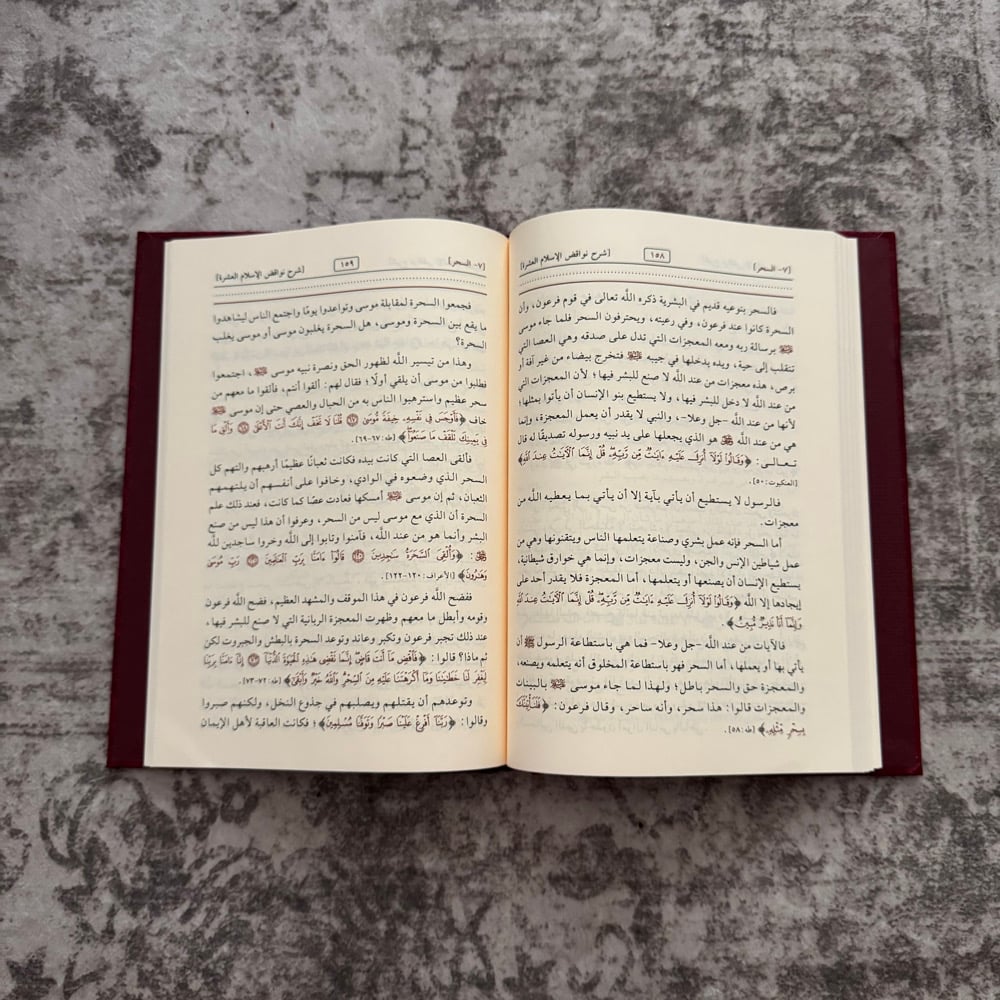 [شرح نواقض الإسلام العشرة]
١٥٨
[٧- السحر]
فالسحر بنوعيه قديم في البشرية ذكره اللَّه تعالى في قوم فرعون، وأن
السحرة كانوا عند فرعون، وفي رعيته، ويحترفون السحر فلما جاء موسى
ﷺ برسالة ربه ومعه المعجزات التي تدل على صدقه وهي العصا التي
تنقلب إلى حية، ويده يدخلها في جيبه ﷺ فتخرج بيضاء من غير آفة أو
برص، هذه معجزات من عند اللَّه لا صنع للبشر فيها؛ لأن المعجزات التي
من عند اللَّه لا دخل للبشر فيها، ولا يستطيع بنو الإنسان أن يأتوا بمثلها؛
لأنها من عند اللَّه -جل وعلا-، والنبي لا يقدر أن يعمل المعجزة، وإنما
هي من عند اللَّه ﷻ هو الذي يجعلها على يد نبيه ورسوله تصديقًا له قال
تعالى: ﴿وَقَالُوا۟ لَوْلَآ أُنزِلَ عَلَيْهِ ءَايَٰتٌ مِّن رَّبِّهِۦ قُلْ إِنَّمَا ٱلْءَايَٰتُ عِندَ ٱللَّهِ﴾
[العنكبوت: ٥٠].
فالرسول لا يستطيع أن يأتي بآية إلا أن يأتي بما يعطيه اللَّه من
معجزات.
أما السحر فإنه عمل بشري وصناعة يتعلمها الناس ويتقنونها وهي من
عمل شياطين الإنس والجن، وليست معجزات، وإنما هي خوارق شيطانية،
يستطيع الإنسان أن يصنعها أو يتعلمها، أما المعجزة فلا يقدر أحد على
إيجادها إلا اللَّه ﴿وَقَالُوا۟ لَوْلَآ أُنزِلَ عَلَيْهِ ءَايَٰتٌ مِّن رَّبِّهِۦ قُلْ إِنَّمَا ٱلْءَايَٰتُ عِندَ ٱللَّهِ
وَإِنَّمَآ أَنَا۠ نَذِيرٌ مُّبِينٌ﴾.
فالآيات من عند اللَّه -جل وعلا- فما هي باستطاعة الرسول ﷺ أن
يأتي بها أو يعملها، أما السحر فهو باستطاعة المخلوق أنه يتعلمه ويصنعه،
والمعجزة حق والسحر باطل؛ ولهذا لما جاء موسى ﷺ بالبينات
والمعجزات قالوا: هذا سحر، وأنه ساحر، وقال فرعون: ﴿فَلَنَأْتِيَنَّكَ
بِسِحْرٍ مِّثْلِهِۦ﴾ [طه: ٥٨].
[شرح نواقض الإسلام العشرة]
١٥٩
[٧- السحر]
فجمعوا السحرة لمقابلة موسى وتواعدوا يومًا واجتمع الناس ليشاهدوا
ما يقع بين السحرة وموسى، هل السحرة يغلبون موسى أو موسى يغلب
السحرة؟
وهذا من تيسير اللَّه لظهور الحق ونصرة نبيه موسى ﷺ، اجتمعوا
فطلبوا من موسى أن يلقي أولًا؛ فقال لهم: ألقوا أنتم، فألقوا ما معهم من
سحر عظيم واسترهبوا الناس به من الحبال والعصي حتى إن موسى ﷺ
خاف ﴿فَأَوْجَسَ فِى نَفْسِهِۦ خِيفَةً مُّوسَىٰ ٦٧ قُلْنَا لَا تَخَفْ إِنَّكَ أَنتَ ٱلْأَعْلَىٰ ٦٨ وَأَلْقِ مَا
فِى يَمِينِكَ تَلْقَفْ مَا صَنَعُوٓا۟﴾ [طه: ٦٧-٦٩].
فألقى العصا التي كانت بيده فكانت ثعبانًا عظيمًا أرهبهم والتهم كل
السحر الذي وضعوه في الوادي، وخافوا على أنفسهم أن يلتهمهم
الثعبان، ثم إن موسى ﷺ أمسكها فعادت عصًا كما كانت، فعند ذلك علم
السحرة أن الذي مع موسى ليس من السحر، وعرفوا أن هذا ليس من صنع
البشر وأنما هو من عند اللَّه، فآمنوا وتابوا إلى اللَّه وخروا ساجدين للَّه
ﷻ: ﴿وَأُلْقِىَ ٱلسَّحَرَةُ سَٰجِدِينَ ١٢٠ قَالُوٓا۟ ءَامَنَّا بِرَبِّ ٱلْعَٰلَمِينَ ١٢١ رَبِّ مُوسَىٰ
وَهَٰرُونَ﴾ [الأعراف: ١٢٠-١٢٢].
ففضح اللَّه فرعون في هذا الموقف والمشهد العظيم، فضح اللَّه فرعون
وقومه وأبطل ما معهم وظهرت المعجزة الربانية التي لا صنع للبشر فيها،
عند ذلك تجبر فرعون وتكبر وعاند وتوعد السحرة بالبطش والجبروت لكن
ثم ماذا؟ قالوا: ﴿فَٱقْضِ مَآ أَنتَ قَاضٍ إِنَّمَا تَقْضِى هَٰذِهِ ٱلْحَيَوٰةَ ٱلدُّنْيَآ ٧٢ إِنَّآ ءَامَنَّا بِرَبِّنَا
لِيَغْفِرَ لَنَا خَطَٰيَٰنَا وَمَآ أَكْرَهْتَنَا عَلَيْهِ مِنَ ٱلسِّحْرِ وَٱللَّهُ خَيْرٌ وَأَبْقَىٰٓ﴾ [طه: ٧٢-٧٣].
وتوعدهم أن يقتلهم ويصلبهم في جذوع النخل، ولكنهم صبروا
وقالوا: ﴿رَبَّنَآ أَفْرِغْ عَلَيْنَا صَبْرًا وَتَوَفَّنَا مُسْلِمِينَ﴾؛ فكانت العاقبة لأهل الإيمان